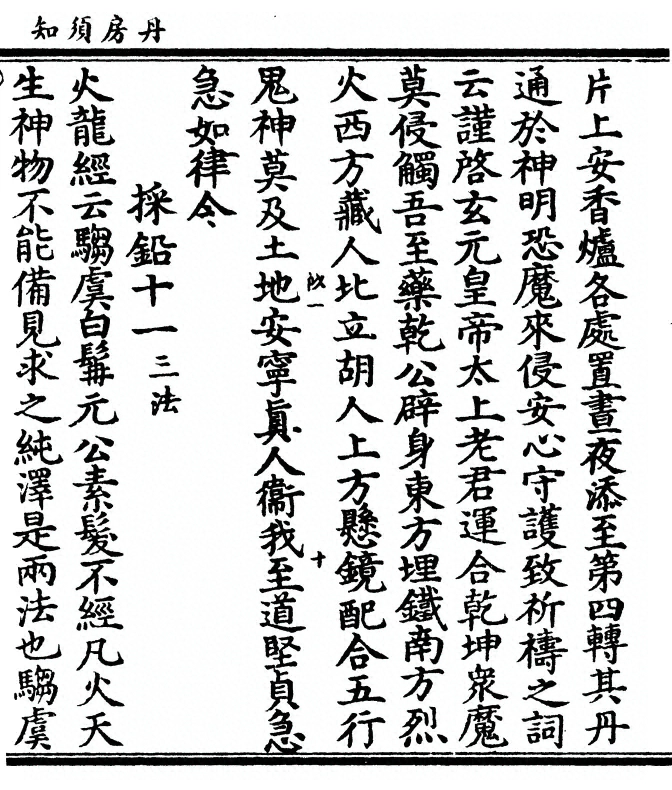 丹房須知
片上安香爐各處置晝夜添至第四轉其丹
通於神明恐魔來侵安心守護致祈禱之詞
云謹啓玄元皇帝太上老君運合乾坤衆魔
莫侵觸吾至藥乾公辟身東方埋鐵南方烈
火西方藏人北立胡人上方懸鏡配合五行
鬼神莫及土地安寧眞人衞我至道堅貞急
急如律令
採鉛十一三法
火龍經云騶虞白髯元公素髮不經凡火天
生神物不能備見求之純澤是兩法也騶虞
十